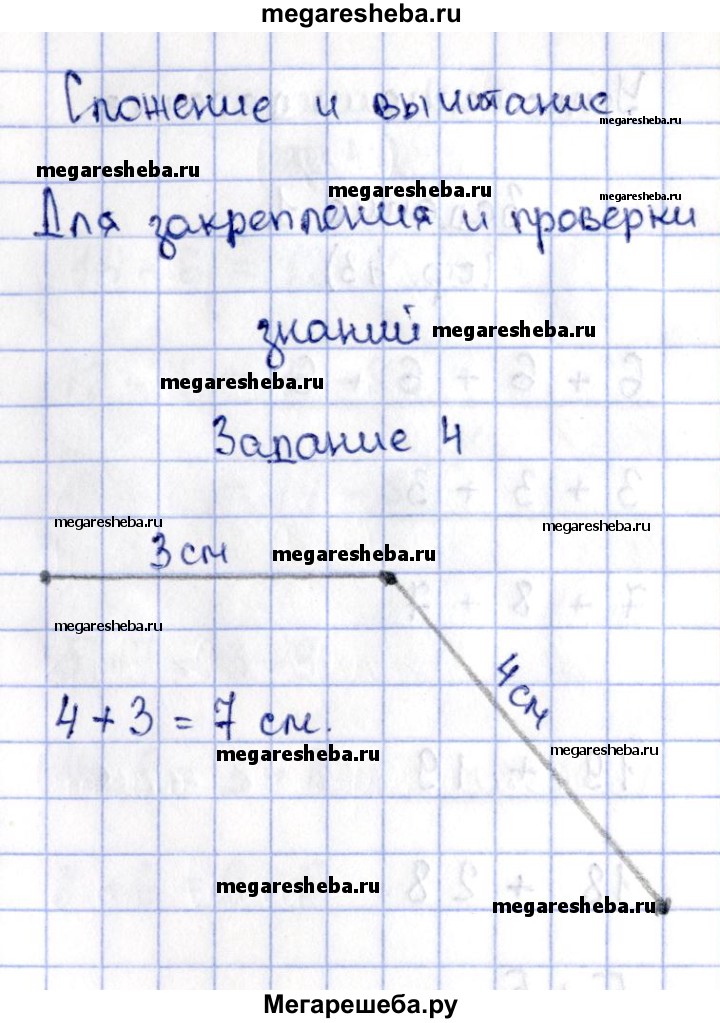 megaresheba.ru
Сложение и вычитание.
megaresheba.ru
megaresheba.ru
megaresheba.ru
megaresheba.ru
Для закрепления и проверки
знаний
megaresheba.ru
megaresheba.ru
Задание 4
megaresheba.ru
megaresheba.ru
3 см
megaresheba.ru
megaresheba.ru
4 см
4 + 3 = 7 см.
megaresheba.ru
megaresheba.ru
megaresheba.ru
megaresheba.ru
Мегарешеба.ру